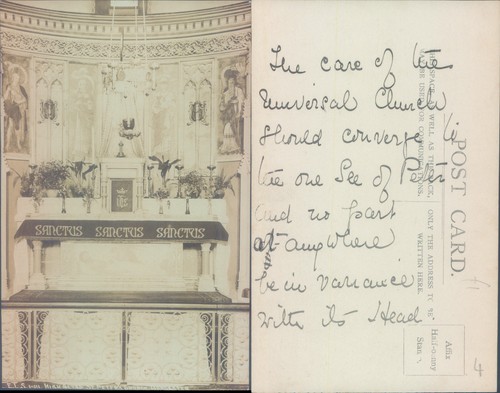 SANCTUS SANCTUS SANCTUS
The care of the
Universal Church
should converge to
the one See of Peter
and no part
at anywhere
be in variance
with its Head
POST CARD.
THIS SPACE, AS WELL AS THE BACK,
MAY BE USED FOR COMMUNICATIONS.
ONLY THE ADDRESS TO BE
WRITTEN HERE.
Affix
Halfpenny
Stamp